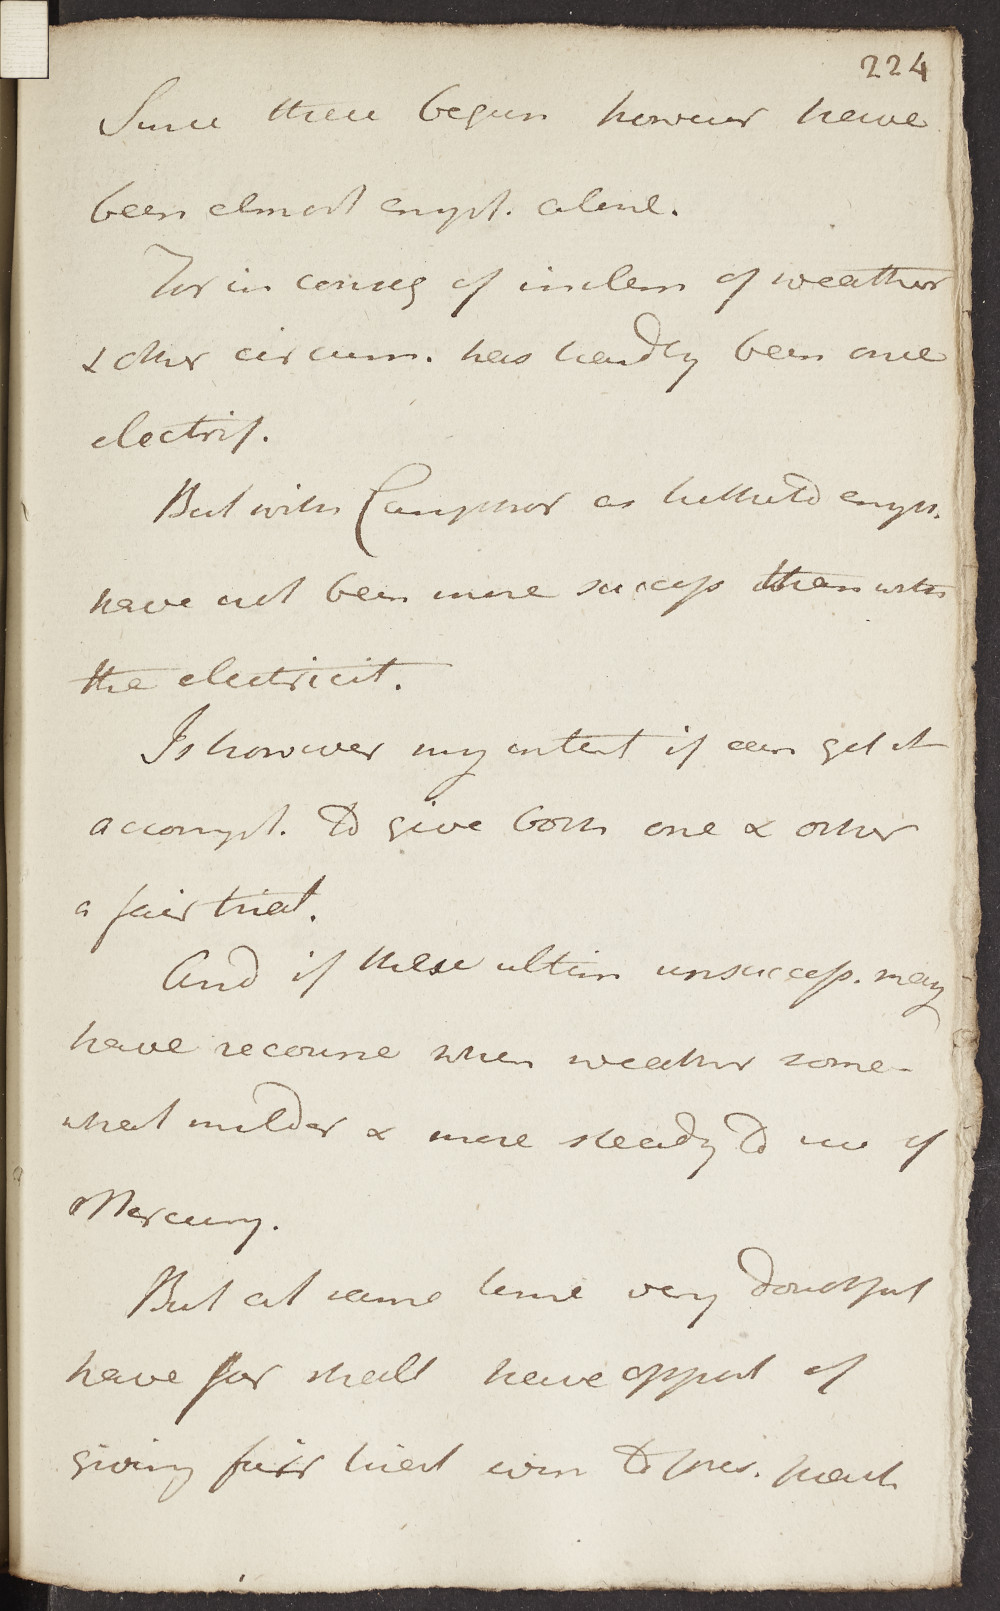 224
Since these begun however have
been almost empl. alone.
For in conseq of inclem of weather
& other circum. has hardly been once
electrif.
But with Camphor as hitherto empl.
have not been more success than with
the electricit.
Is however my intent if can get it
accompl. to give both one & other
a fair trial.
And if these ultim unsuccess. may
have recourse when weather some-
what milder & more steady to use of
Mercury.
But at same time very doubtful
have far shall have opport of
giving fair trial even to